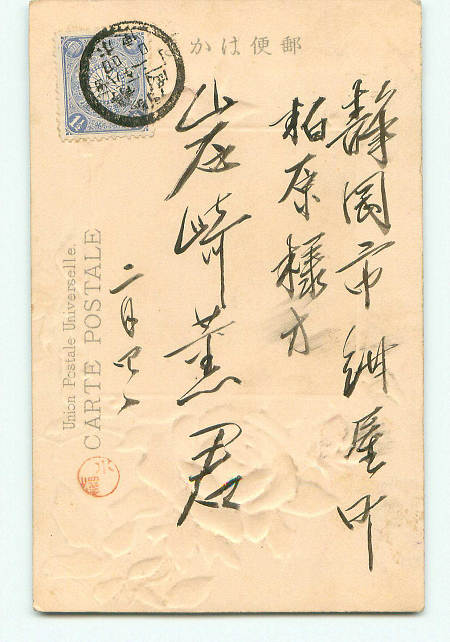 郵便はかき
静岡市紺屋町
柏原様方
岸崎薫君
二月四日
Union Postale Universelle.
CARTE POSTALE
1½